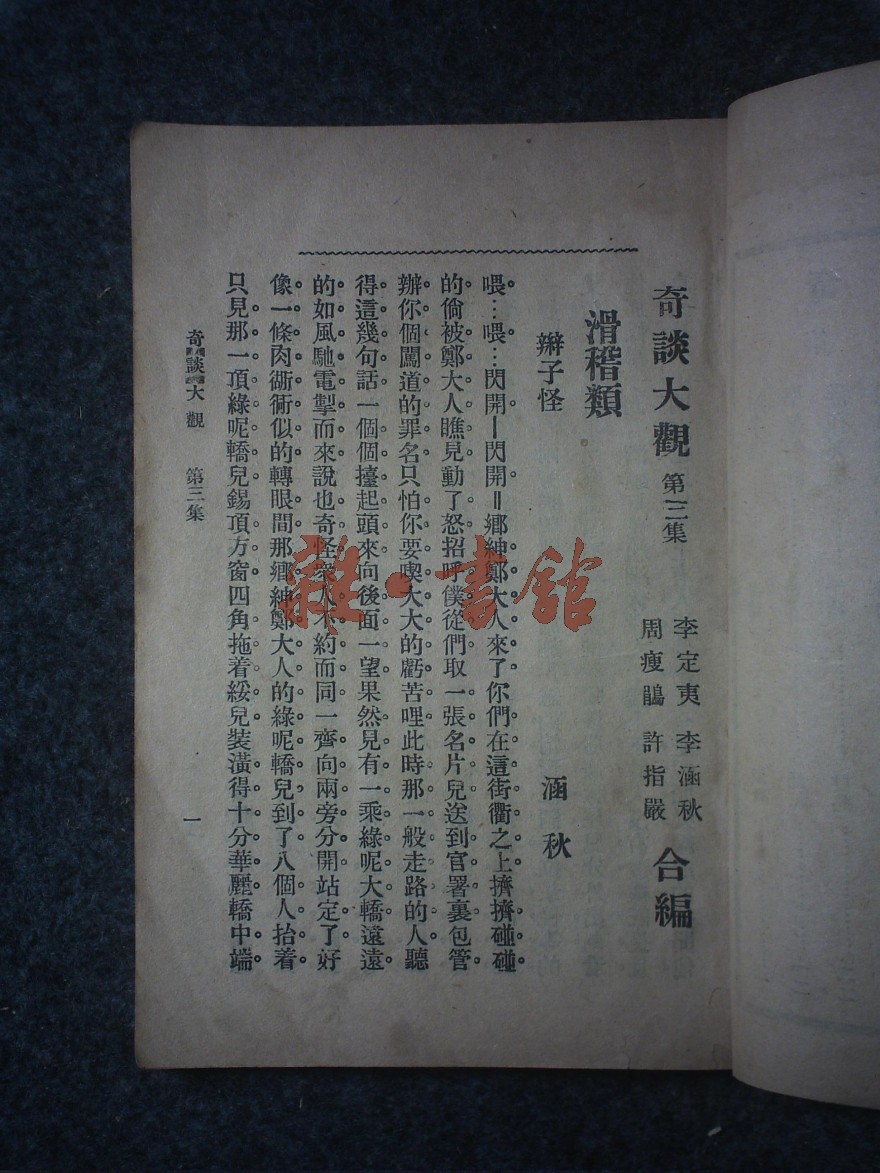 奇談大觀 第三集
李定夷 李涵秋
周瘦鵑 許指嚴
合編
滑稽類
辮子怪 涵秋
喂…喂…閃開—閃開‖鄉紳鄭大人來了你們在這街衢之上擠擠碰碰
的倘被鄭大人瞧見動了怒招呼僕從們取一張名片兒送到官署裏包管
辦你個闖道的罪名只怕你要喫大大的虧苦哩此時那一般走路的人聽
得這幾句話一個個擡起頭來向後面一望果然見有一乘綠呢大轎遠遠
的如風馳電掣而來說也奇怪衆人不約而同一齊向兩旁分開站定了好
像一條肉衚衕似的轉眼間那鄉紳鄭大人的綠呢轎兒到了八個人抬着
只見那一頂綠呢轎兒錫頂方窗四角拖着綏兒裝潢得十分華麗轎中端
奇談大觀 第三集
一
雜·書館